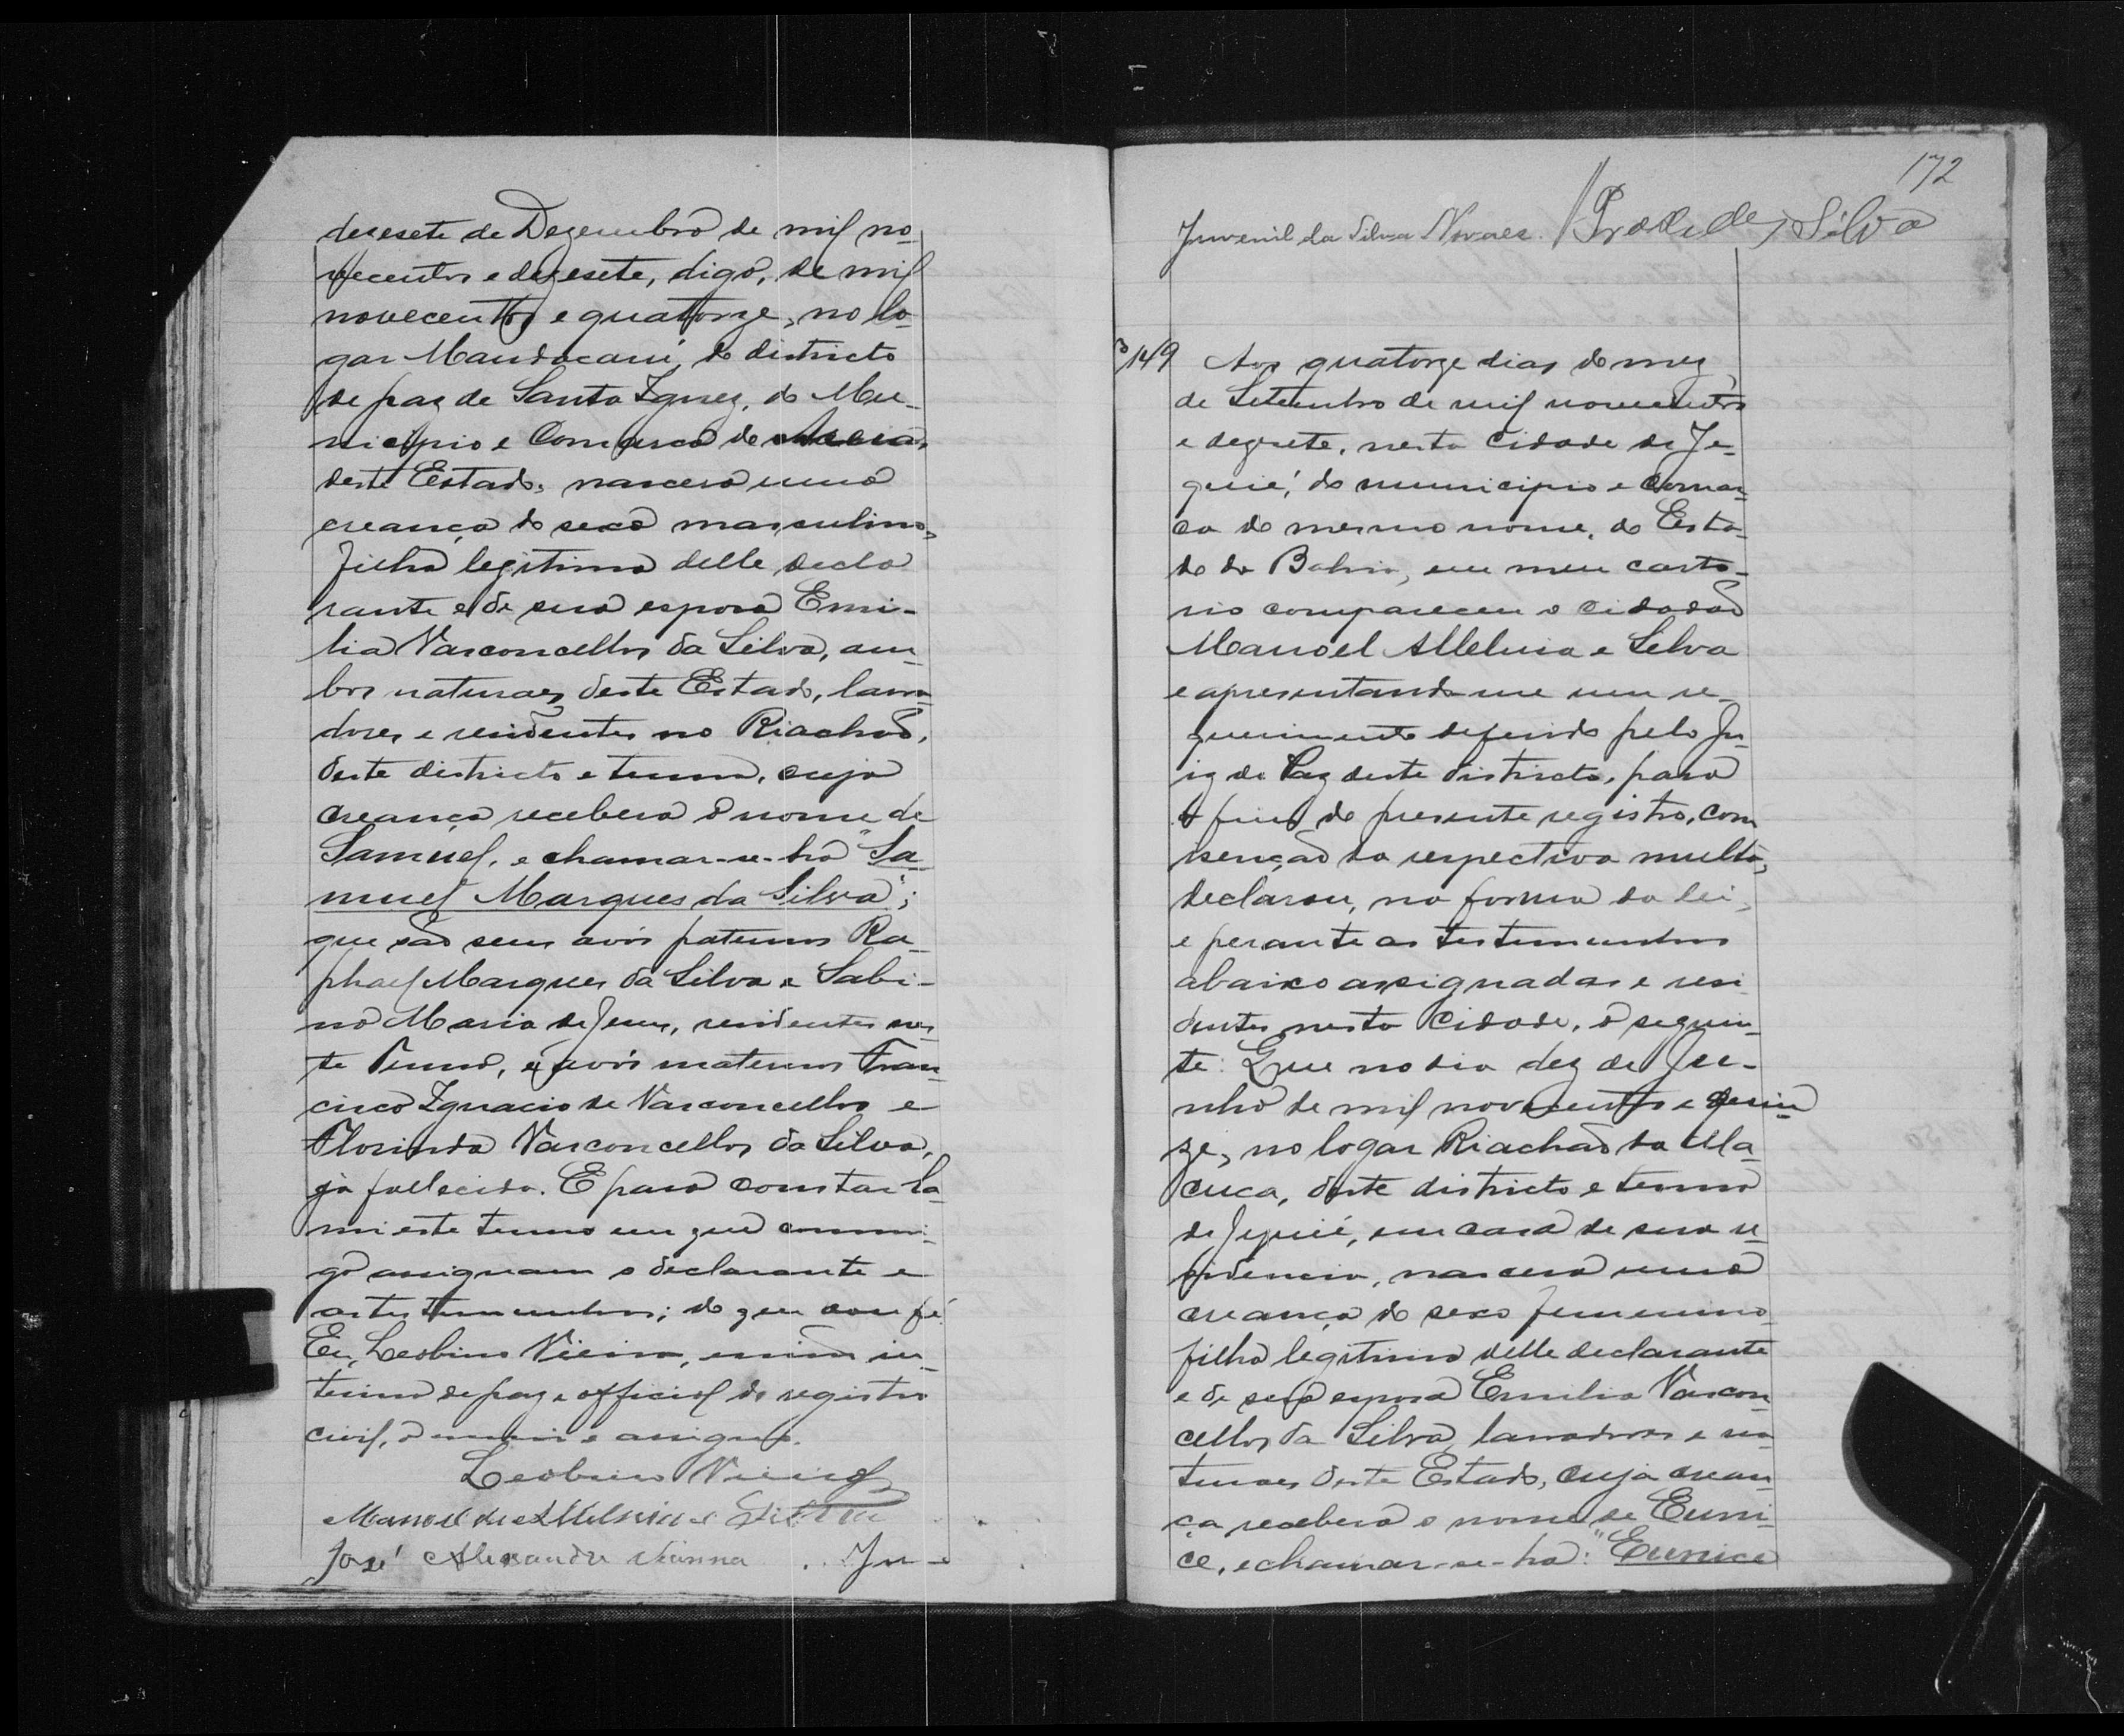 desesete de Dezembro de mil no-
vecentos e dezesete, digo, de mil
novecentos e quatorze, no lo-
gar Mandacarú, do districto
de paz de Santa Ignez, do Mu-
nicipio e Comarca de
deste Estado, nascera uma
creança do sexo masculino,
filha legitima delle decla
rante e de sua esposa Emi-
lia Vasconcellos da Silva, am-
bos naturaes deste Estado, lavra
dores e residentes no Riachão,
deste districto e termo, cuja
creança recebera o nome de
Samuel, e chamar-se-ha "Sa-
muel Marques da Silva";
que são seus avós paternos Ra-
phael Marques da Silva e Sabi-
na Maria de Jesus, residentes nes-
te Termo, e avós maternos Fran-
cisco Ignacio de Vasconcellos e
Florinda Vasconcellos da Silva,
já fallecida. E para constar la-
vrei este termo em que commi-
go assignam o declarante e
as testemunhas; do que dou fé
Eu, Leobino Vieira, escrivão in-
terino de paz e official do registro
civil, o escrevi e assigno.
Leobino Vieira
Manoel Alleluia e Silva
José Alexandre Vianna Ju-
172
Juvenil da Silva Novaes. Silva
149 Aos quatorze dias do mez
de Setembro de mil novecentos
e dezesete, nesta Cidade de Je-
quié, do municipio e Comar-
ca do mesmo nome, do Esta-
do da Bahia, em meu carto-
rio compareceu o cidadão
Manoel Alleluia e Silva
e apresentando-me um re-
querimento deferido pelo Ju-
iz de Paz deste districto, para
o fim do presente registro, com
isenção da respectiva multa,
declarou, na forma da lei,
e perante as testemunhas
abaixo assignadas e resi
dentes nesta Cidade, o seguin-
te: Que no dia dez de Ju-
nho de mil novecentos e quin-
ze, no logar Riachão da Ma-
cuca, deste districto e termo
de Jequié, em casa de sua re-
sidencia, nascera uma
creança do sexo femenino
filha legitima delle declarante
e de sua esposa Emilia Vascon-
cellos da Silva, lavradores e na
turaes deste Estado, cuja crean-
ça recebera o nome de Euni-
ce, e chamar-se-ha: "Eunice